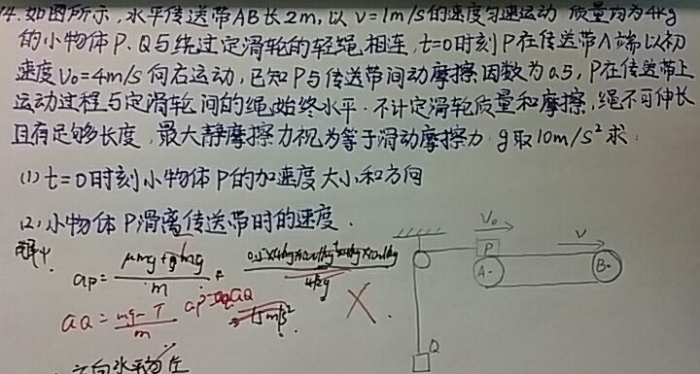 14.如图所示,水平传送带AB长2m,以v=1m/s的速度匀速运动.质量均为4kg
的小物体P、Q与绕过定滑轮的轻绳相连,t=0时刻P在传送带A端以初
速度V₀=4m/s向右运动,已知P与传送带间动摩擦因数为0.5,P在传送带上
运动过程与定滑轮间的绳始终水平.不计定滑轮质量和摩擦,绳不可伸长
且有足够长度,最大静摩擦力视为等于滑动摩擦力.g取10m/s²求:
(1)t=0时刻小物体P的加速度大小和方向
(2)小物体P滑离传送带时的速度.
V₀
V
P
A
B
Q
aP=
m
aQ=mg-T/m
方向水平向左